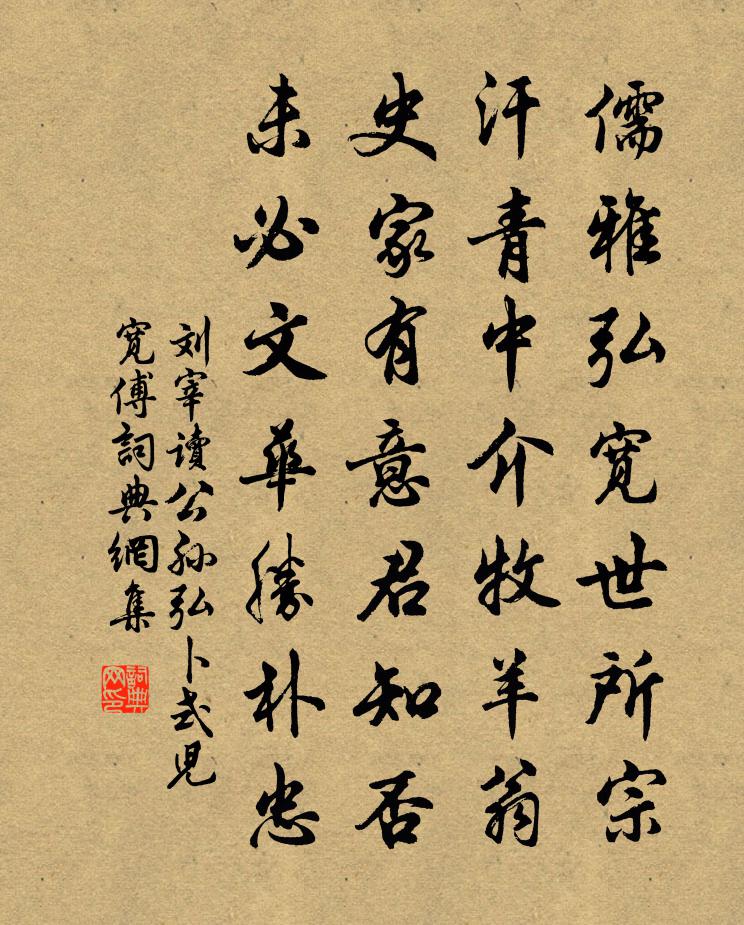 儒雅弘寬世所宗
汗青中介牧羊翁
史家有意君知否
未必文華勝朴忠
刘宰讀公孫弘卜式兒
寬傅詞典網集
詞典网印